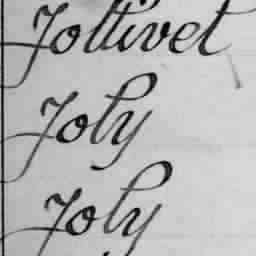 Jollivet
Joly
Joly